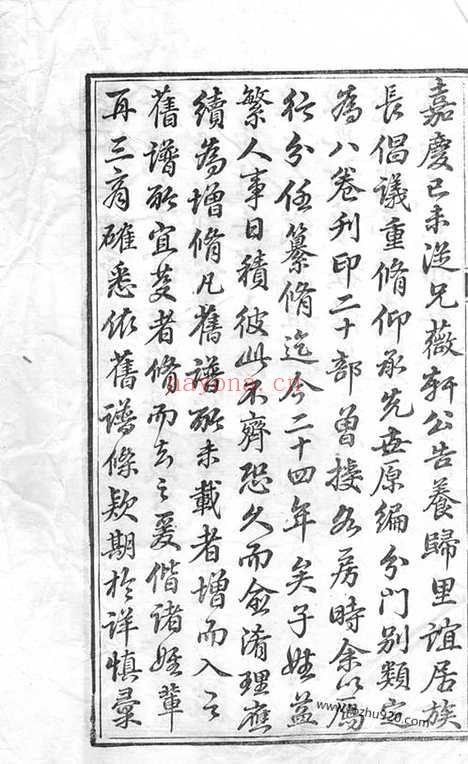 嘉慶已未從兄薇軒公告養歸里誼居族
長倡議重脩仰承先世原編分門別類定
為八卷刊印二十部曾授各房時余以鴈
行分任纂脩迄今二十四年矣子姓益
繁人事日積彼此不齊恐久而愈淆理應
續為增脩凡舊譜所未載者增而入之
舊譜所宜芟者脩而去之爰偕諸姪輩
再三商確悉依舊譜條款期於詳慎彙
hayona.cn
www.pzhu920.com